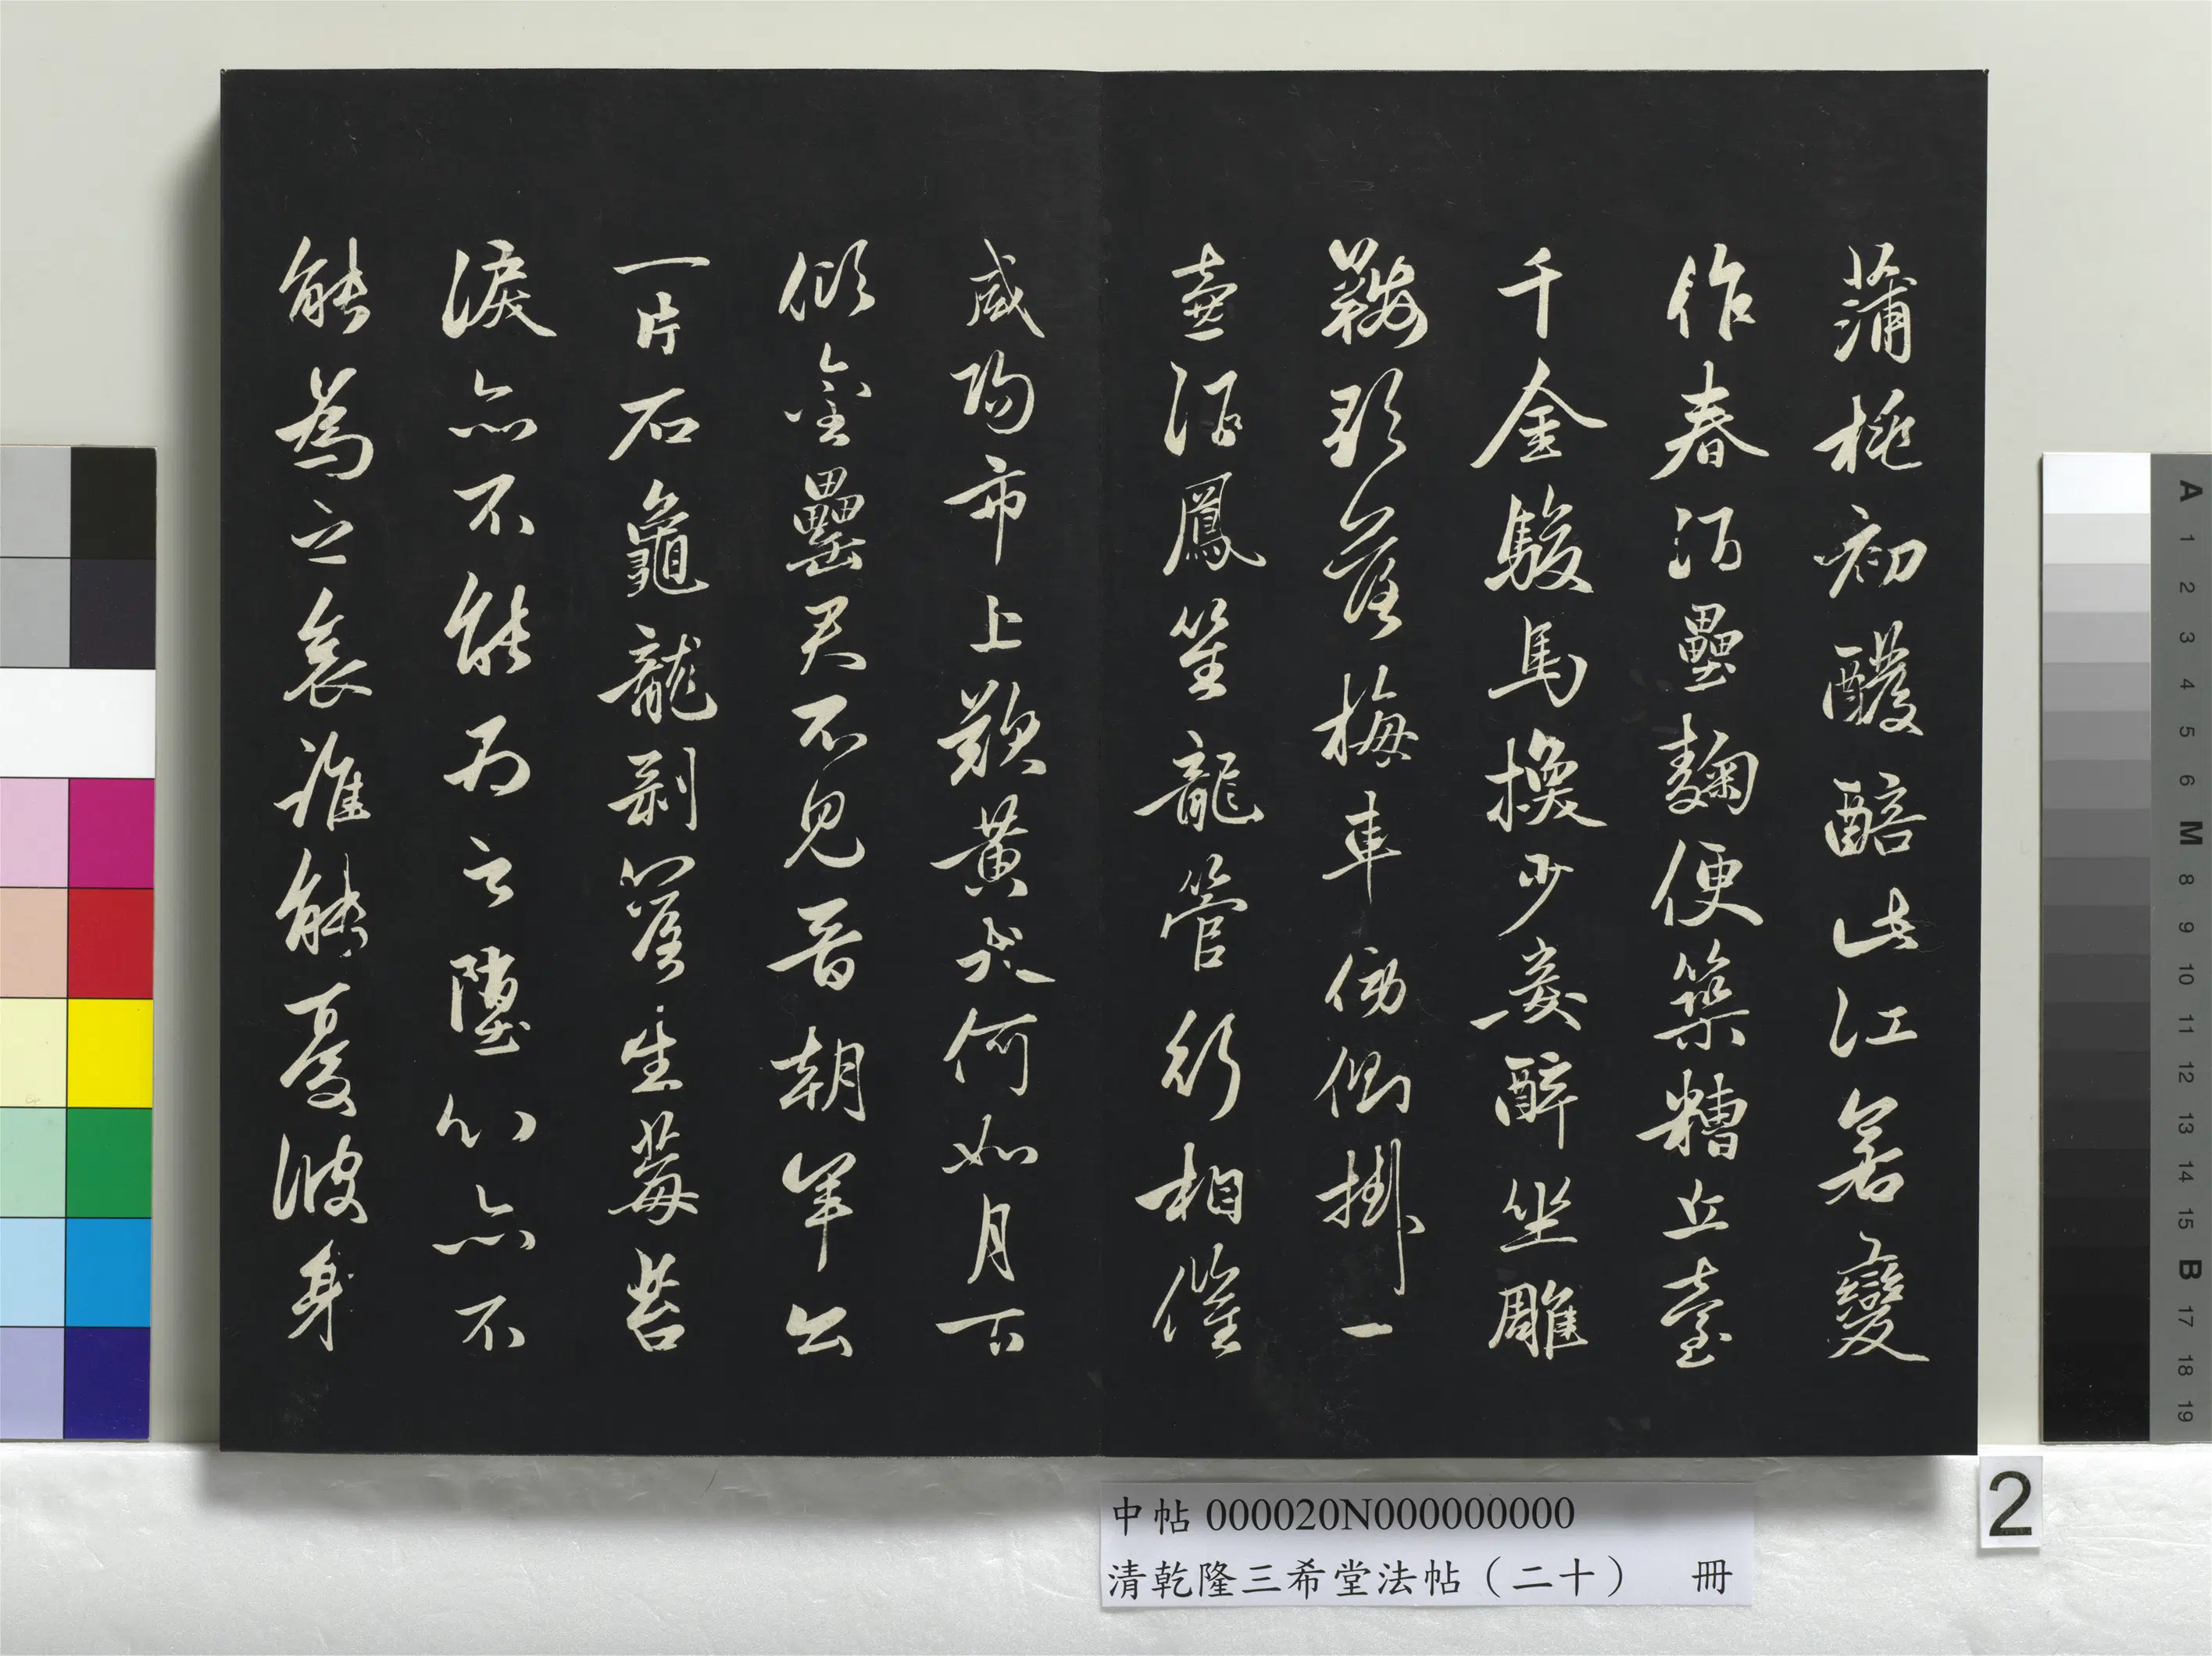 蒲桃初醱醅此江若變
作春酒壘麴便築糟丘臺
千金駿馬換少妾醉坐雕
鞍歌落梅車傍側掛一
壺酒鳳笙龍管行相催
咸陽市上歎黃犬何如月下
傾金罍君不見晉朝羊公
一片石龜龍剥落生莓苔
淚亦不能為之墮心亦不
能為之哀誰能憂彼身
中帖 000020N000000000
清乾隆三希堂法帖（二十） 冊
2
A 1 2 3 4 5 6 M 8 9 10 11 12 13 14 15 B 17 18 19